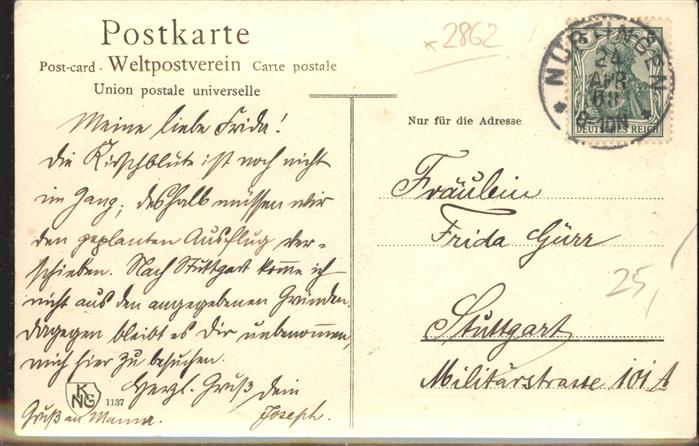 Postkarte
Post-card - Weltpostverein Carte postale
Union postale universelle
2862
NÜRTINGEN
24
APR
08
9-10N
5
DEUTSCHES REICH
Nur für die Adresse
Meine liebe Frida!
Die Kirschblüte ist noch nicht
im Gang; deshalb müssen wir
den geplanten Ausflug ver-
schieben. Nach Stuttgart komme ich
nicht aus den angegebenen Gründen.
Dagegen bleibt es Dir unbenommen,
mich hier zu besuchen.
Herzl. Gruß Dein
Joseph.
Gruß an Mama.
KNG
1137
Fräulein
Frida Gürr
Stuttgart
Militärstrasse 101 A
25,